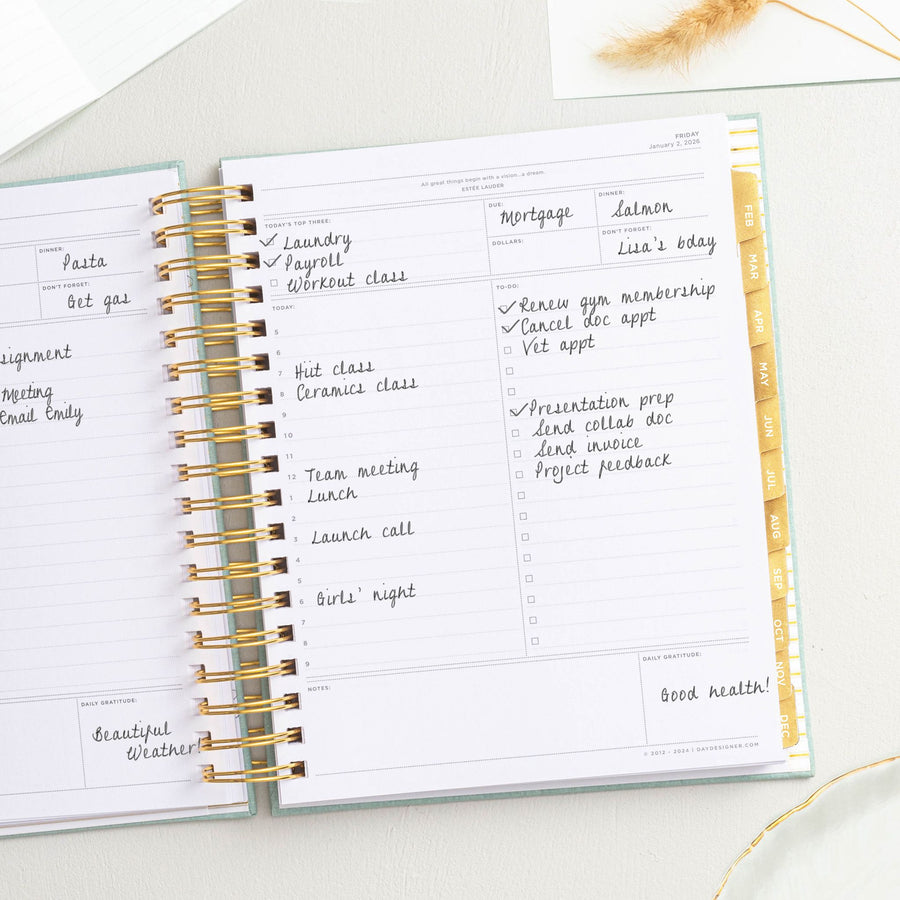 DINNER:
Pasta
DON'T FORGET:
Get gas
signment
Meeting
Email Emily
DAILY GRATITUDE:
Beautiful
Weather!
FRIDAY
January 2, 2026
All great things begin with a vision...a dream.
ESTÉE LAUDER
TODAY'S TOP THREE:
Laundry
Payroll
Workout class
DUE:
Mortgage
DINNER:
Salmon
DOLLARS:
DON'T FORGET:
Lisa's bday
TODAY:
5
6
7 Hiit class
8 Ceramics class
9
10
11
12 Team meeting
1 Lunch
2
3 Launch call
4
5
6 Girls' night
7
8
9
TO-DO:
Renew gym membership
Cancel doc appt
Vet appt
Presentation prep
Send collab doc
Send invoice
Project feedback
NOTES:
DAILY GRATITUDE:
Good health!
© 2012 - 2024 | DAYDESIGNER.COM
FEB
MAR
APR
MAY
JUN
JUL
AUG
SEP
OCT
NOV
DEC